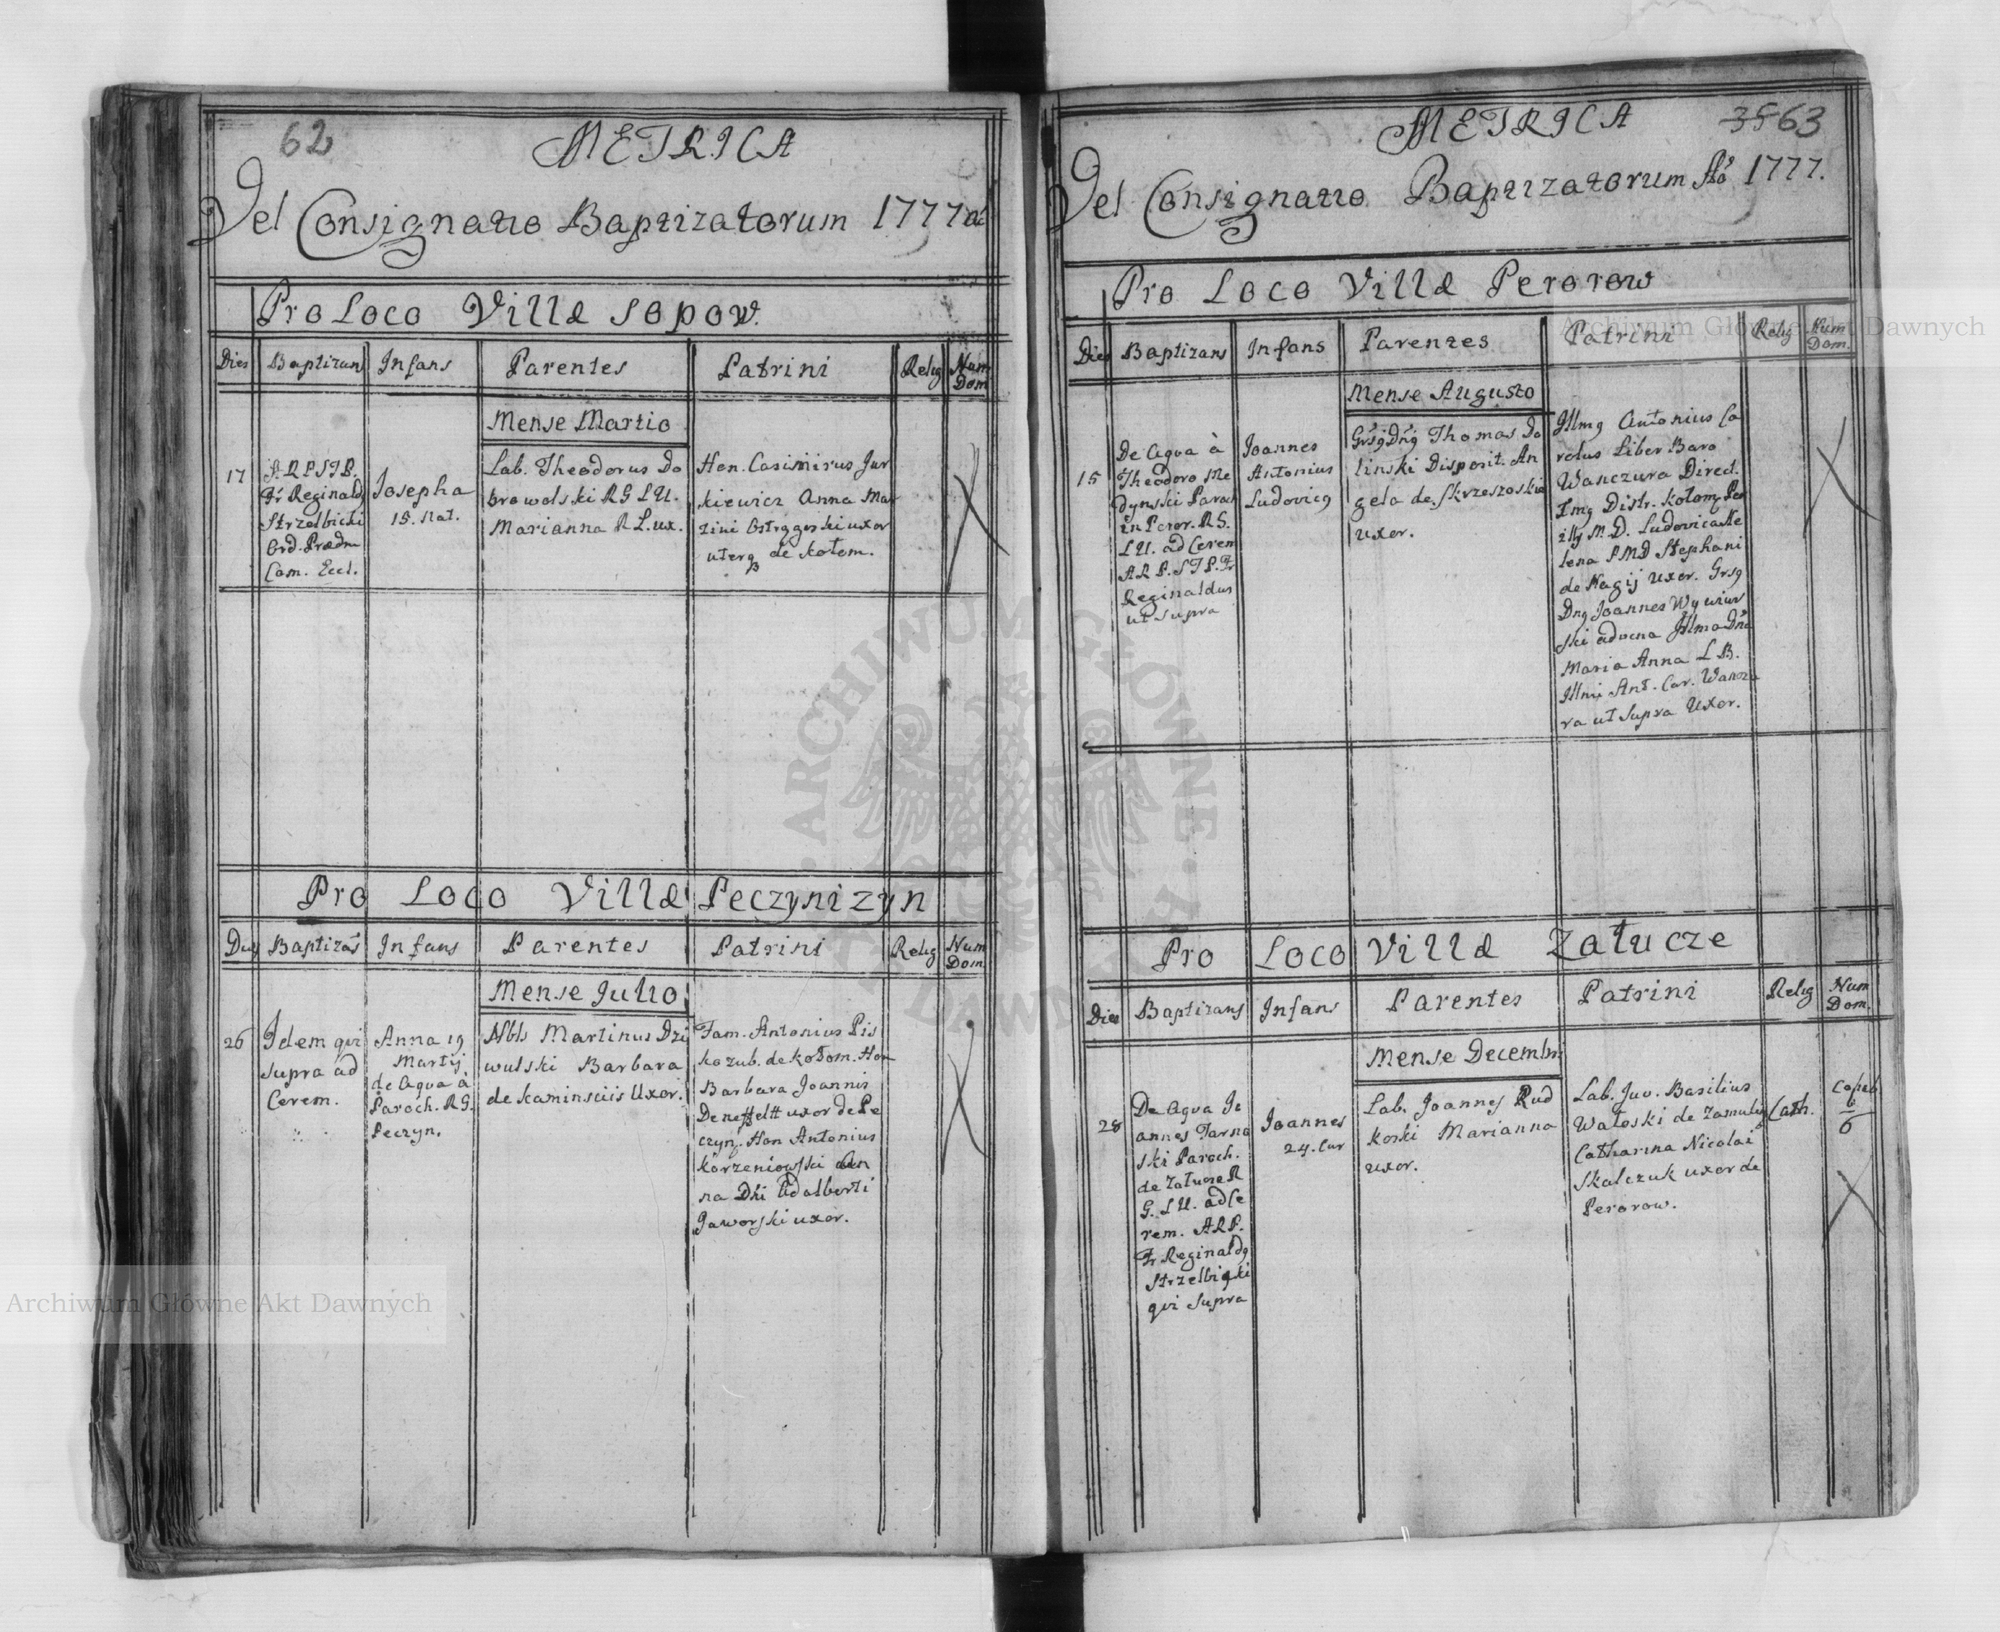 62
METRICA
Vel Consignatio Baptizatorum 1777
Pro Loco Villæ Sopow.
Dies Baptizans Infans Parentes Patrini Relig Num Dom
Mense Martio
17
A.R.P.S.T.B.
Fr Reginald9
Strzelbicki
Ord. Prædm
Com. Eccl.
Josepha
15. Nat.
Lab. Theodorus Do
browolski R G L U.
Marianna R L. ux.
Hon. Casimirus Jur
kiewicz Anna Mar
tini uxor
uterq de Kołom.
Pro Loco Villæ Peczynizyn
Dies Baptizãs Infans Parentes Patrini Relig Num Dom.
Mense Julio
26
Idem qvi
supra ad
Cerem.
Anna 19
Martij
de Aqva à
Paroch. R G.
Peczyn.
Nbls Martinus Dzi
wulski Barbara
de Kaminsciis Uxor.
Fam. Antonius Pis
kozub. de Kołom. Hon
Barbara Joannis
uxor de Pe
czyn. Hon Antonius
Korzeniowski An
na Dni Adalberti
Jaworski uxor.
3563
METRICA
Vel Consignatio Baptizatorum Aõ 1777.
Pro Loco Villæ Perorow
Dies Baptizans Infans Parentes Patrini Relig Num Dom.
Mense Augusto
15
De Aqva à
Theodoro Me
dynski Paroch
in Peror. R G.
L U. ad Cerem
A R P. S T P. Fr
Reginaldus
ut supra
Joannes
Antonius
Ludovic9
Grsg Dng Thomas Do
linski Disposit. An
gela de Skrzeszoskie
uxor.
Illmg Antonius Ca
rolus Liber Baro
Wanczura Direct.
Img Distr. Kołom.
M. D. Ludovica He
lena P M D Stephani
de Nagij Uxor. Grsg
Dng Joannes Wywiur
ski advena Illma Dna
Maria Anna L B.
Illmi Ant. Car. Wancz
ra ut supra Uxor.
Pro Loco Villæ Załucze
Dies Baptizans Infans Parentes Patrini Relig Num Dom.
Mense Decembri
28
De Aqva Jo
annes Tarno
ski Paroch.
de Załucze R
G. L U. ad Ce
rem. A R P.
Fr Reginald9
Strzelbicki
qvi supra
Joannes
24. Cur
Lab. Joannes Rud
koski Marianna
uxor.
Lab. Juv. Basilius
Watoski de Zamulin
Catharina Nicolai
Skalczuk uxor de
Perorow.
Cath.
6
Archiwum Główne Akt Dawnych
Archiwum Główne Akt Dawnych
ARCHIWUM GŁÓWNE AKT DAWNYCH